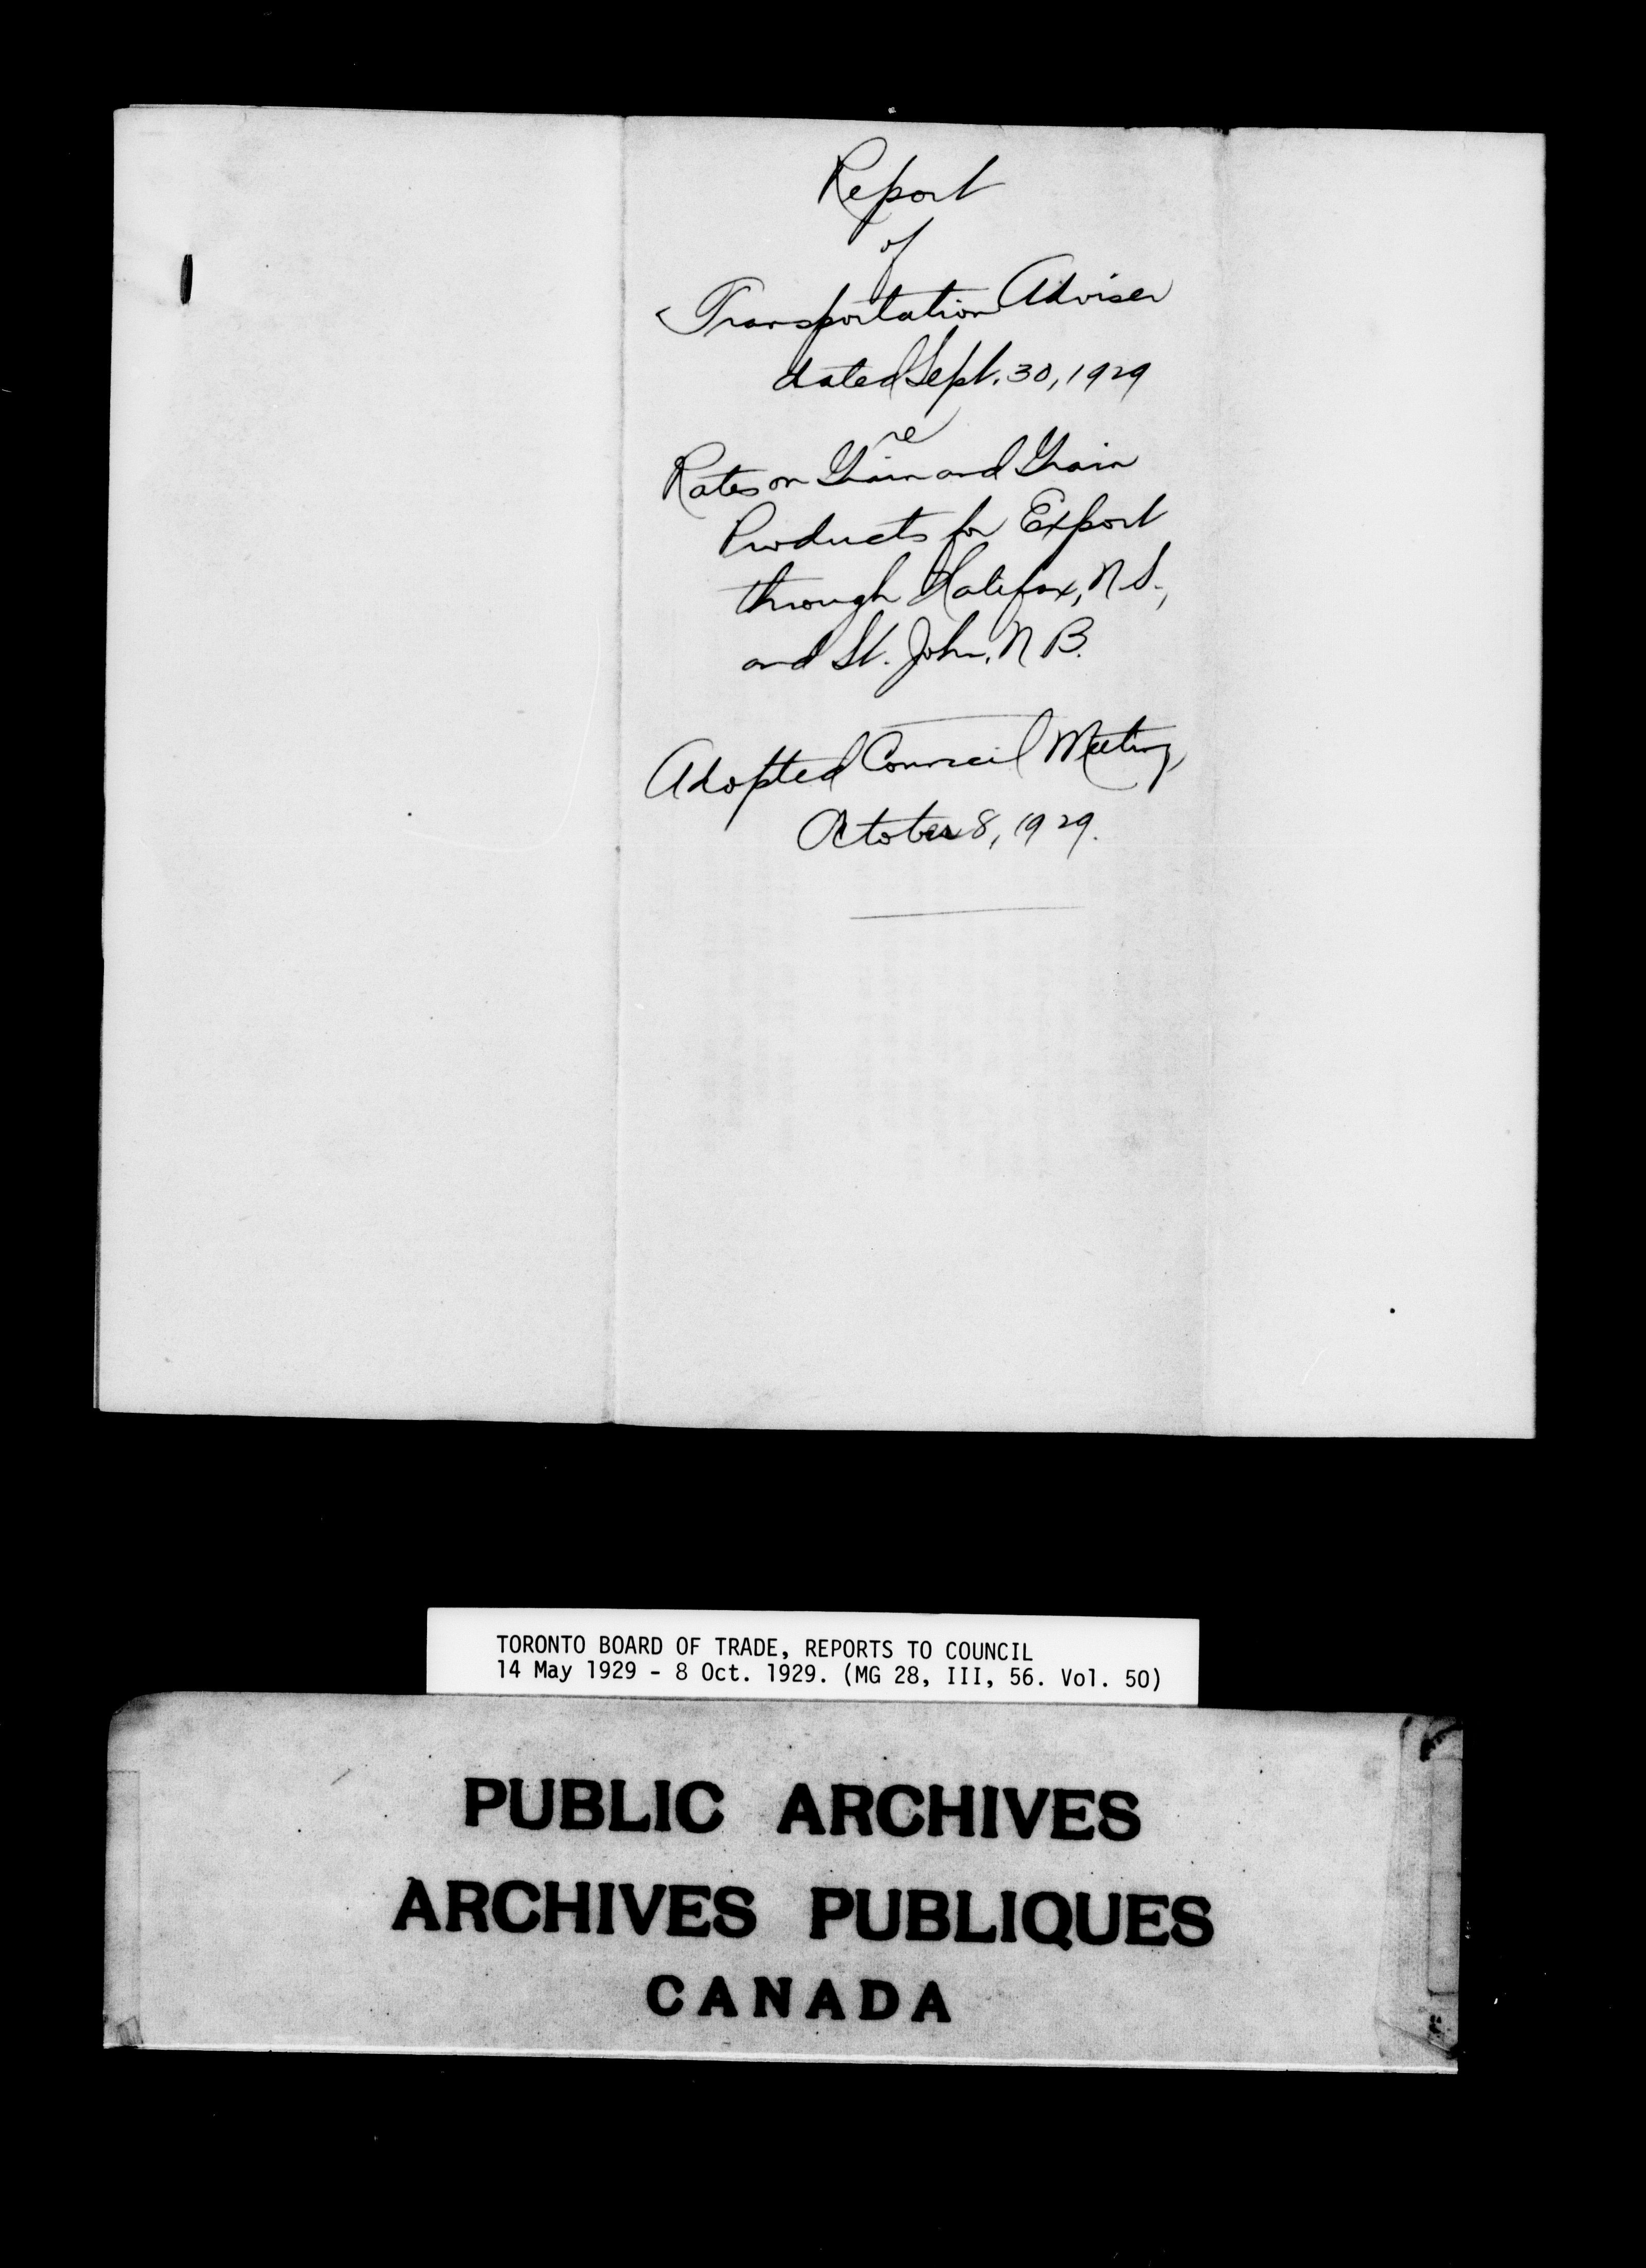 Report
of
Transportation Adviser
dated Sept. 30, 1929
re
Rates on Grain and Grain
Products for Export
through Halifax, N.S.,
and St. John, N.B.
Adopted Council Meeting,
October 8, 1929.
TORONTO BOARD OF TRADE, REPORTS TO COUNCIL
14 May 1929 - 8 Oct. 1929. (MG 28, III, 56. Vol. 50)
PUBLIC ARCHIVES
ARCHIVES PUBLIQUES
CANADA